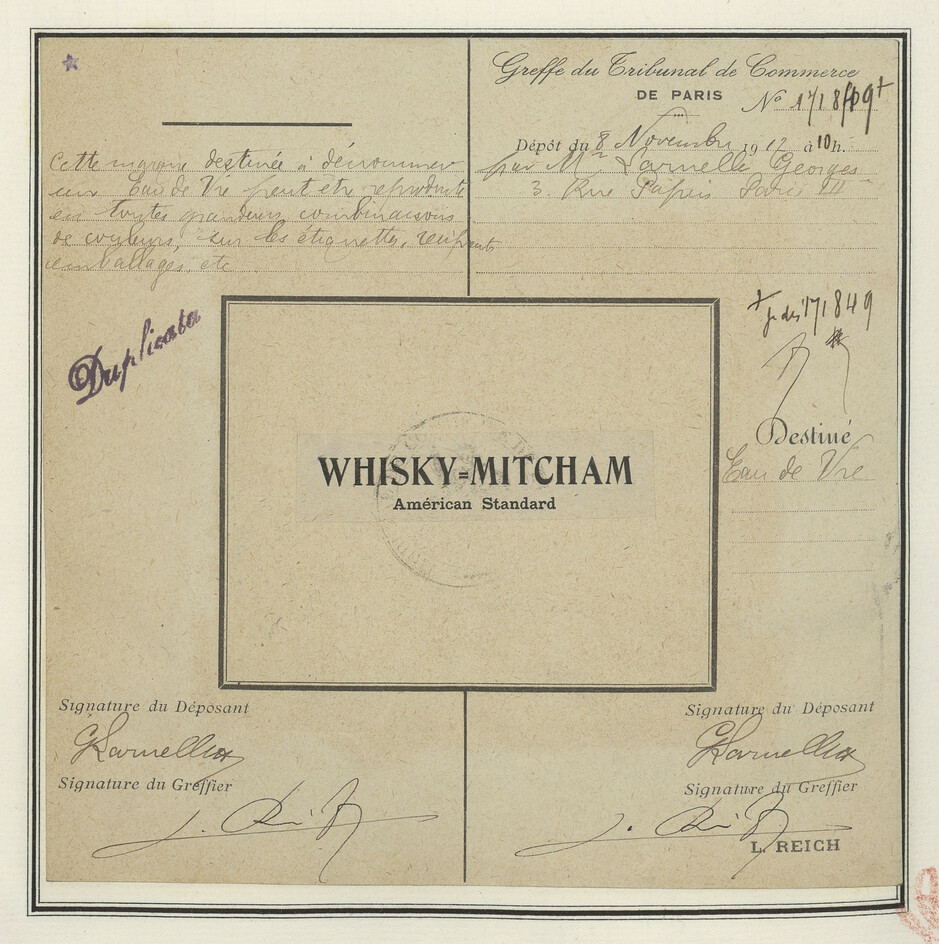 Greffe du Tribunal de Commerce
DE PARIS
No 171849+
Dépôt du 8 Novembre 1917 à 10h.
par Mr Larnelle Georges
3. Rue Papin Paris III
Cette marque destinée à dénommer
une Eau de Vie peut être reproduite
en toutes grandeurs, combinaisons
de couleurs, sur les étiquettes, récipients
emballages, etc
Duplicata
+ 171849
Destiné
Eau de Vie
WHISKY=MITCHAM
Américan Standard
Signature du Déposant
GLarnelle
Signature du Greffier
Signature du Déposant
GLarnelle
Signature du Greffier
L. REICH